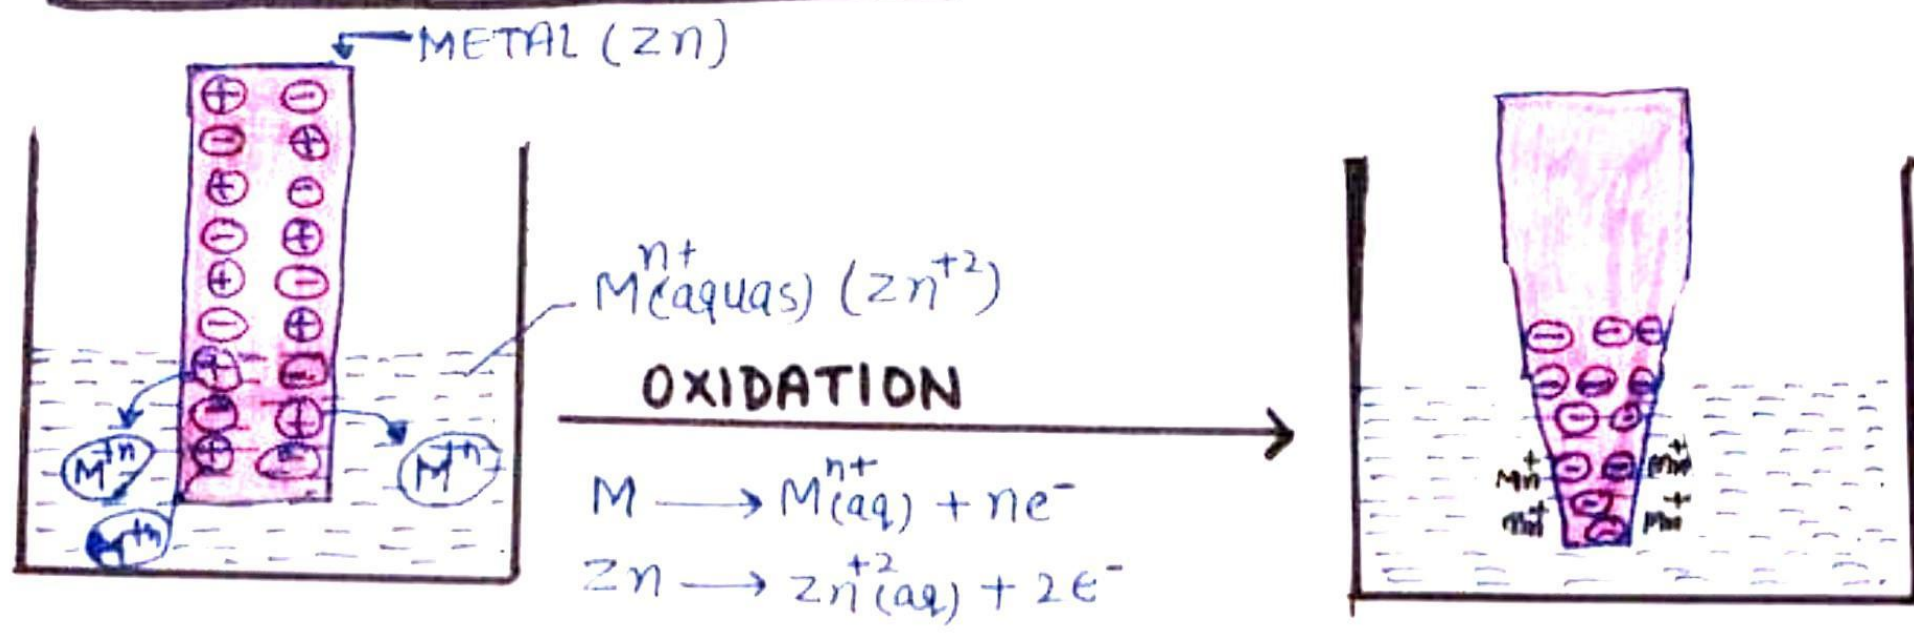 METAL (Zn)
M^{n+}(aquas) (Zn^{+2})
OXIDATION
M ⟶ M^{n+}(aq) + ne^-
Zn ⟶ Zn^{+2}(aq) + 2e^-
M^{+n}
M^{+n}
M^{+n}